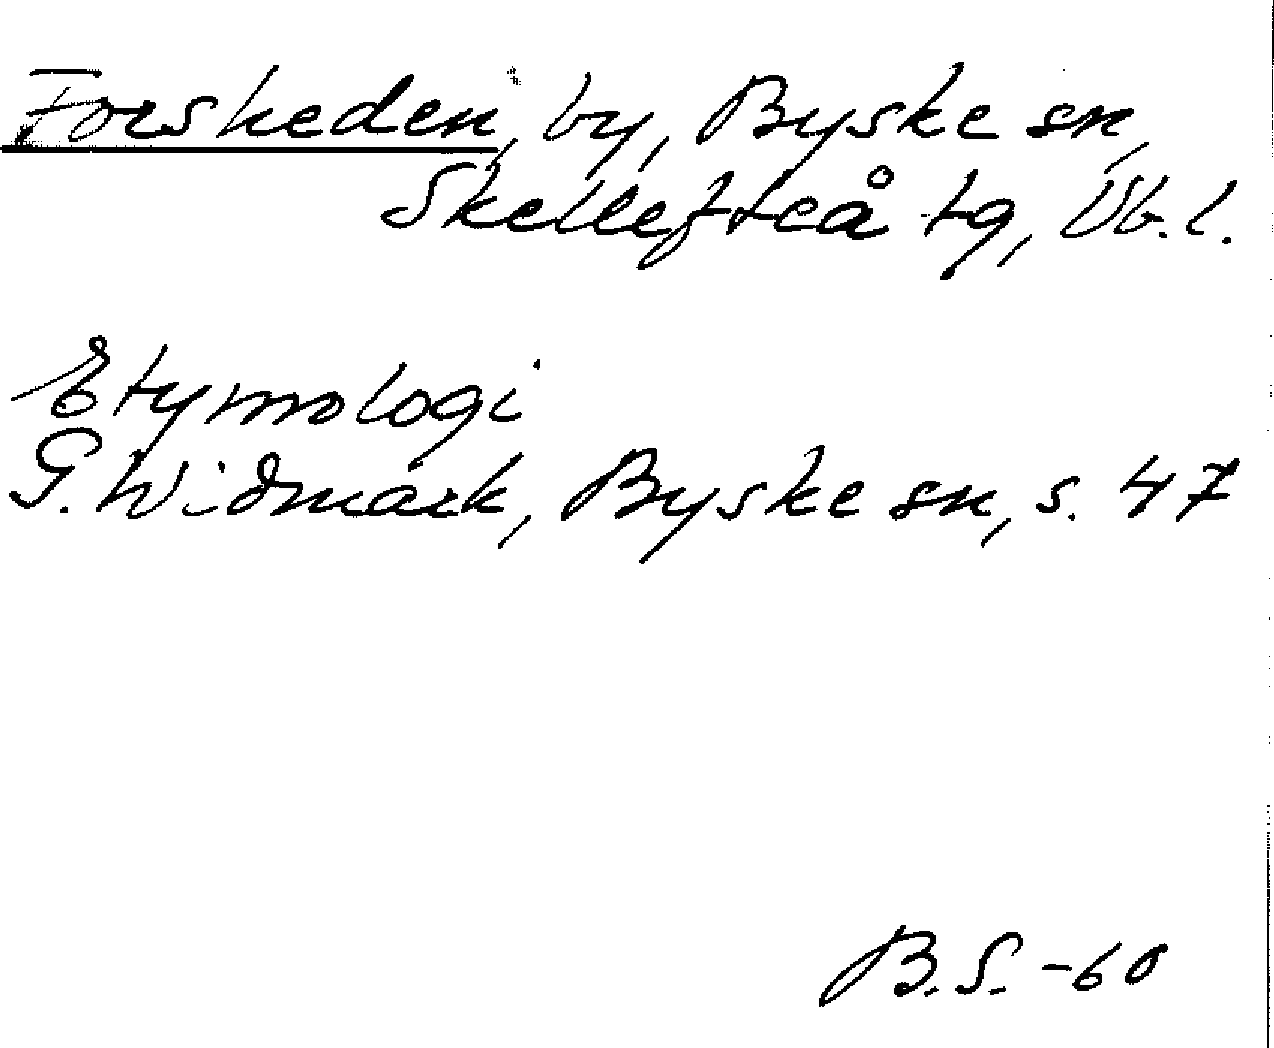 Forsheden, by, Byske sn,
Skellefteå tg, Vb. l.
Etymologi
G. Widmark, Byske sn, s. 47
B.S. -60